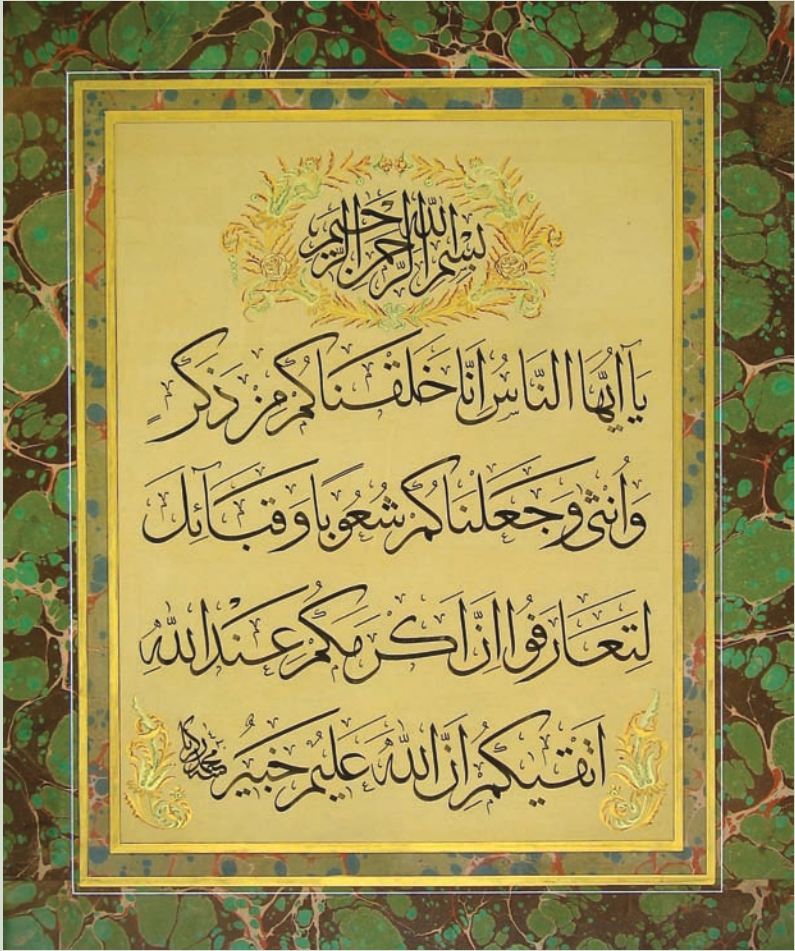 بِسْمِ اللهِ الرَّحْمٰنِ الرَّحِيمِ
يَا أَيُّهَا النَّاسُ اِنَّا خَلَقْنَاكُمْ مِنْ ذَكَرٍ
وَاُنْثٰى وَجَعَلْنَاكُمْ شُعُوبًا وَقَبَائِلَ
لِتَعَارَفُوا اِنَّ اَكْرَمَكُمْ عِنْدَ اللهِ
اَتْقٰيكُمْ اِنَّ اللهَ عَلِيمٌ خَبِيرٌ